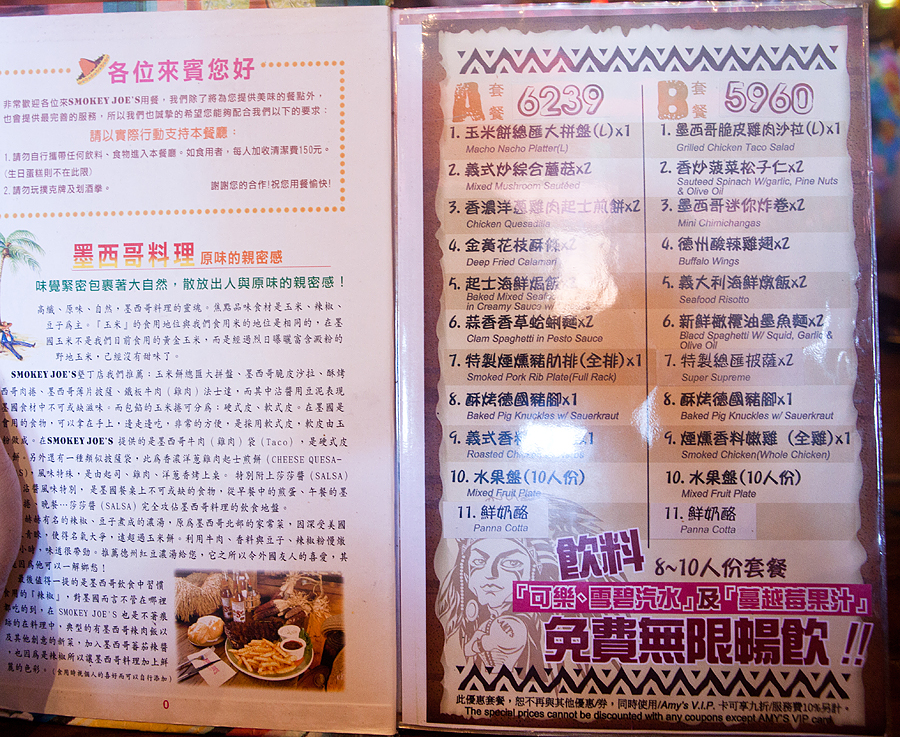 各位來賓您好
非常歡迎各位來SMOKEY JOE'S用餐，我們除了將為您提供美味的餐點外，
也會提供最完善的服務，所以我們也誠摯的希望您能夠配合我們以下的要求：
請以實際行動支持本餐廳：
1.請勿自行攜帶任何飲料、食物進入本餐廳。如食用者，每人加收清潔費150元。
(生日蛋糕則不在此限)
2.請勿玩撲克牌及划酒拳。 謝謝您的合作!祝您用餐愉快!
墨西哥料理 原味的親密感
味覺緊密包裹著大自然，散放出人與原味的親密感！
高纖、原味、自然，墨西哥料理的靈魂。焦點品味食材是玉米、辣椒、
豆子為主。「玉米」的食用地位與我們食用米的地位是相同的，在墨
國玉米不是我們目前食用的黃金玉米，而是經過烈日曝曬富含澱粉的
野地玉米，已經沒有甜味了。
SMOKEY JOE'S墾丁店我們推薦：玉米餅總匯大拼盤、墨西哥脆皮沙拉、酥烤
西哥肉捲、墨西哥薄片披薩、鐵板牛肉（雞肉）法士達，而其中沾醬用豆泥表現
墨國食材中不可或缺滋味。而包餡的玉米捲可分為：硬式皮、軟式皮。在墨國是
食用的食物，可以拿在手上，邊走邊吃，非常的方便，是採用軟式皮，軟皮由玉
粉做成。在SMOKEY JOE'S 提供的是墨西哥牛肉（雞肉）袋（Taco），是硬式皮
餅。另外還有一種類似披薩袋，此為香濃洋蔥雞肉起士煎餅（CHEESE QUESA-
S），風味特殊，是由起司、雞肉、洋蔥香烤上桌。特別附上莎莎醬（SALSA）
沾醬風味特別，是墨國餐桌上不可或缺的食物，從早餐中的煎蛋、午餐的墨
捲、晚餐…莎莎醬（SALSA）完全攻佔墨西哥料理的飲食地盤。
赫赫有名的辣椒、豆子煮成的濃湯，原為墨西哥北部的家常菜，因深受美國
青睞，使得名氣大爭，遠超過玉米餅。利用牛肉、香料與豆子、辣椒粉慢燉
小時，味道很帶勁。推薦德州紅豆濃湯給您，它之所以令外國友人的喜愛，其
因為他可以一解鄉愁！
最後值得一提的是墨西哥飲食中習慣
食用的「辣椒」，對墨國而言不管在哪裡
都吃的到，在SMOKEY JOE'S 也是不著痕
跡的在料理中，典型的有墨西哥辣肉飯以
及其他創意的新菜，加入墨西哥蕃茄辣醬
，也因為是辣椒所以讓墨西哥料理加上鮮
麗的色彩。(食用時視個人的喜好而可以自行添加)
0
A套餐 6239
1. 玉米餅總匯大拼盤(L)x1
Macho Nacho Platter(L)
2. 義式炒綜合蘑菇x2
Mixed Mushroom Sauteed
3. 香濃洋蔥雞肉起士煎餅x2
Chicken Quesadilla
4. 金黃花枝酥條x2
Deep Fried Calamari
5. 起士海鮮焗飯x2
Baked Mixed Seafood
in Creamy Sauce w/
6. 蒜香香草蛤蜊麵x2
Clam Spaghetti in Pesto Sauce
7. 特製煙燻豬肋排(全排)x1
Smoked Pork Rib Plate(Full Rack)
8. 酥烤德國豬腳x1
Baked Pig Knuckles w/ Sauerkraut
9. 義式香料
Roasted Chicken
10. 水果盤(10人份)
Mixed Fruit Plate
11. 鮮奶酪
Panna Cotta
B套餐 5960
1. 墨西哥脆皮雞肉沙拉(L)x1
Grilled Chicken Taco Salad
2. 香炒菠菜松子仁x2
Sauteed Spinach W/garlic, Pine Nuts
& Olive Oil
3. 墨西哥迷你炸卷x2
Mini Chimichangas
4. 德州酸辣雞翅x2
Buffalo Wings
5. 義大利海鮮燉飯x2
Seafood Risotto
6. 新鮮橄欖油墨魚麵x2
Blacd Spaghetti W/ Squid, Garlic &
Olive Oil
7. 特製總匯披薩x2
Super Supreme
8. 酥烤德國豬腳x1
Baked Pig Knuckles w/ Sauerkraut
9. 煙燻香料嫩雞（全雞)x1
Smoked Chicken(Whole Chicken)
10. 水果盤(10人份)
Mixed Fruit Plate
11. 鮮奶酪
Panna Cotta
飲料 8~10人份套餐
『可樂、雪碧汽水』及『蔓越莓果汁』
免費無限暢飲!!
此優惠套餐，恕不再與其他優惠/券，同時使用/Amy's V.I.P. 卡可享九折/服務費10%另計。
The special prices cannot be discounted with any coupons except AMY'S VIP card